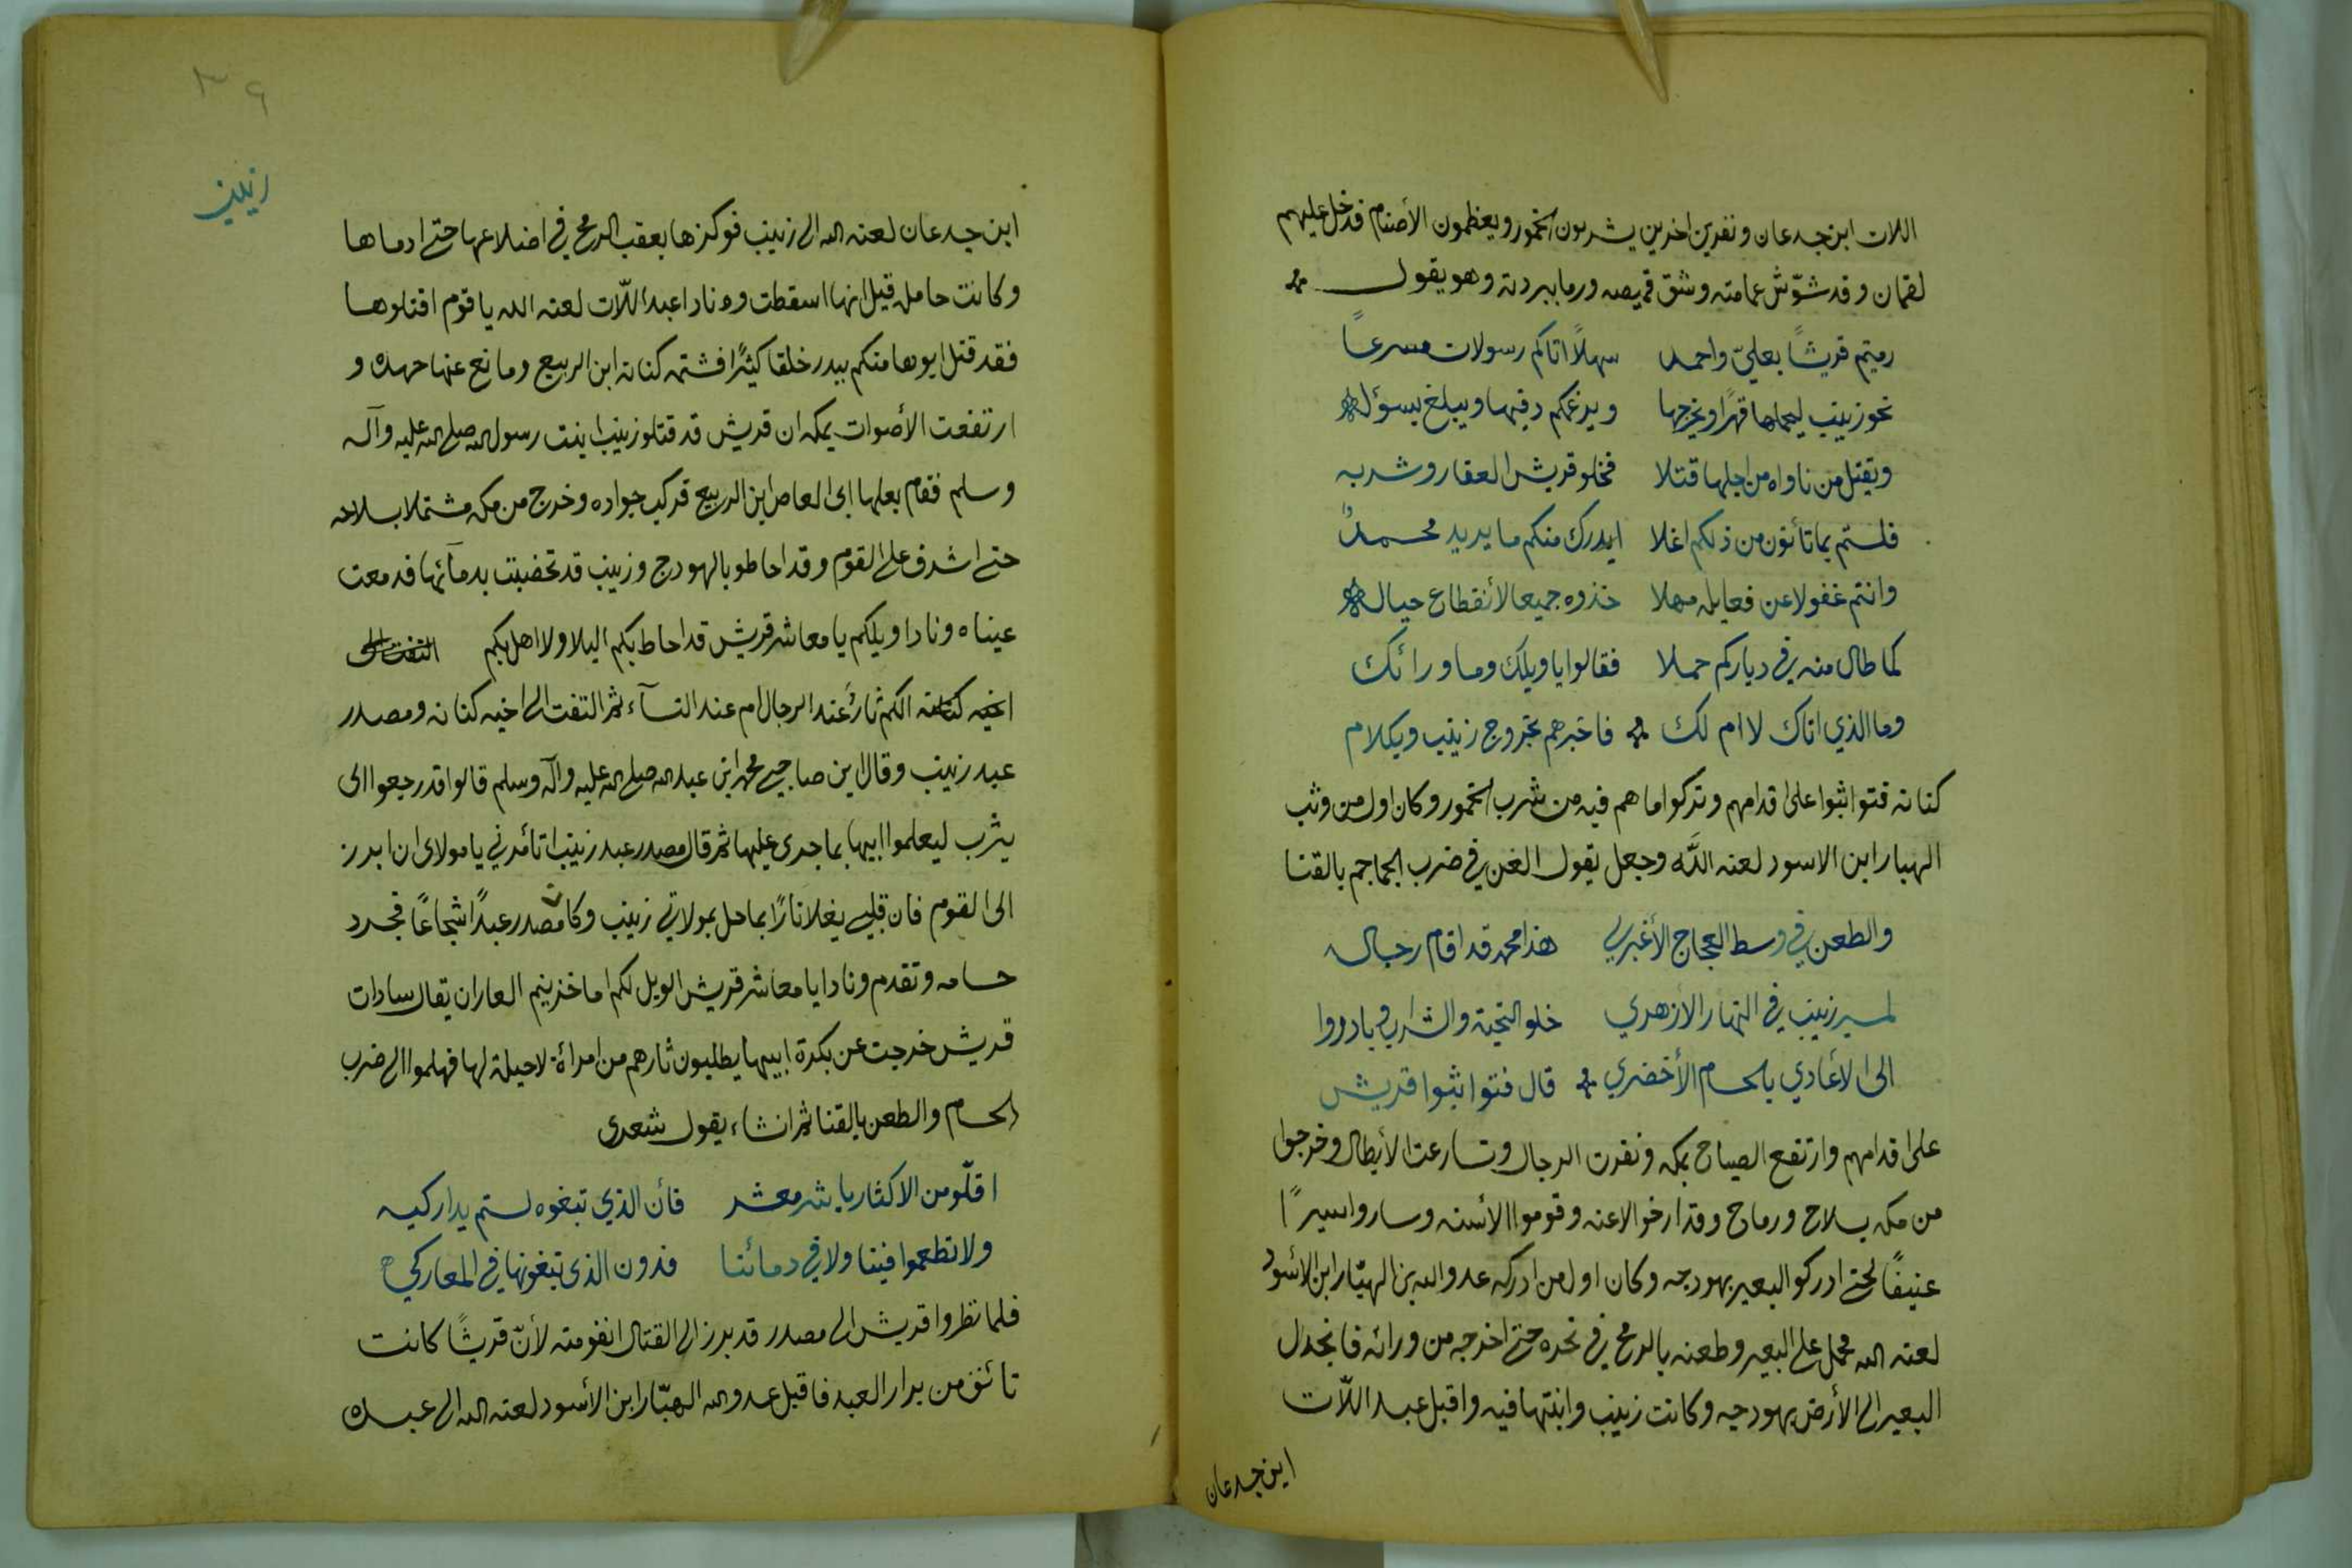 اللات ابن جدعان ونفرين اخرين يشربون الخمور ويعظمون الأصنام فدخل عليهم
لقمان وقد شوّش عمامته وشق قميصه ورما ببردته وهو يقول
رميتم قريشاً بعليّ واحمد سهلاً اتاكم رسولات مسرعاً
نحو زينب ليحماها قهرًا ويخرجها ويرغمكم دفيها ويبلغ بسؤله
ويقتل من ناواه من اجلها قتلا فخلو قريش العقار وشربه
فلستم بما تأتون من ذلكم اغلا ايدرك منكم ما يريد محمدٌ
وانتم غفولا عن فعايله مهلا خذوه جميعا لأنقطاع حباله
كما طال منه في دياركم حملا فقالوا يا ويلك وما ورائك
وما الذي اتاك لا ام لك فاخبرهم بخروج زينب وبكلام
كنانه فتواثبوا على اقدامهم وتركوا ما هم فيه من شرب الخمور وكان اول من وثب
الهبار ابن الاسود لعنه اللّه وجعل يقول الغن في ضرب الجماجم بالقنا
والطعن في وسط العجاج الأغبري هذا محمد قد اقام رجاله
لمسير زينب في النهار الازهري خلو التحية والشراب وبادروا
الى الأعادي بالحسام الأخضري قال فتواثبوا قريش
على اقدامهم وارتفع الصياح بمكه ونفرت الرجال وتسارعت الأبطال وخرجوا
من مكه بسلاح ورماح وقد ارخوا الاعنه وقوموا الأسنه وساروا سيرًا
عنيفًا لحتى ادركو البعير بهودجه وكان اول من ادركه عدو الله بن الهبّار ابن الأسود
لعنه الله فحمل على البعير وطعنه بالرمح في نحره حتى اخرجه من ورائه فانجدل
البعير الى الأرض بهودجه وكانت زينب وابنتها فيه واقبل عبد اللّات
ابن جدعان
٣٩
زينب
ابن جدعان لعنه الله الى زينب فوكزها بعقب الرمح في اضلاعها حتى ادماها
وكانت حامل قيل انها اسقطت ونادا عبد اللّات لعنه الله يا قوم اقتلوها
فقد قتل ابوها منكم ببدر خلقا كثيرًا فشتمه كنانه ابن الربيع ومانع عنها جهده و
ارتفعت الأصوات بمكه ان قريش قد قتلو زينب ابنت رسول الله صلى الله عليه وآله
وسلم فقام بعلها ابى العاص ابن الربيع فركب جواده وخرج من مكه مشتملا بسلاحه
حتى اشرف على القوم وقد احاطو بالهودج وزينب قد تخضبت بدمائها فدمعت
عيناه ونادا ويلكم يا معاشر قريش قد احاط بكم البلا ولا اهل بكم التفت الى
اخيه كنانه الكم ثارٌ عند الرجال ام عند النسآء ثم التفت الى اخيه كنانه ومصدر
عبد زينب وقال اين صاحبى محمد ابن عبد الله صلى الله عليه وآله وسلم قالوا قد رجعوا الى
يثرب ليعلموا ابيها بما جرى عليها ثم قال مصدر عبد زينب اتأمرني يا مولاى ان ابرز
الى القوم فان قلبي يغلا نارًا بما حل بمولاتي زينب وكان مصدر عبدًا شجاعًا فجرد
حسامه وتقدم ونادا يا معاشر قريش الويل لكم اما خزيتم العار ان يقال سادات
قريش خرجت عن بكرة ابيها يطلبون ثارهم من امرأة لا حيلة لها فهلموا الى ضرب
الحسام والطعن بالقنا ثم انشاء يقول شعرى
اقلّو من الاكثار يا شر معشر فأن الذي تبغوه لستم بداركيه
ولا تطمعوا فينا ولا في دمائنا فدون الذى تبغونها في المعاركي
فلما نظروا قريش الى مصدر قد برز الى القتال انفو منه لأنّ قريشًا كانت
تأنف من براز العبد فاقبل عدو الله الهبّار ابن الأسود لعنه الله الى عبده